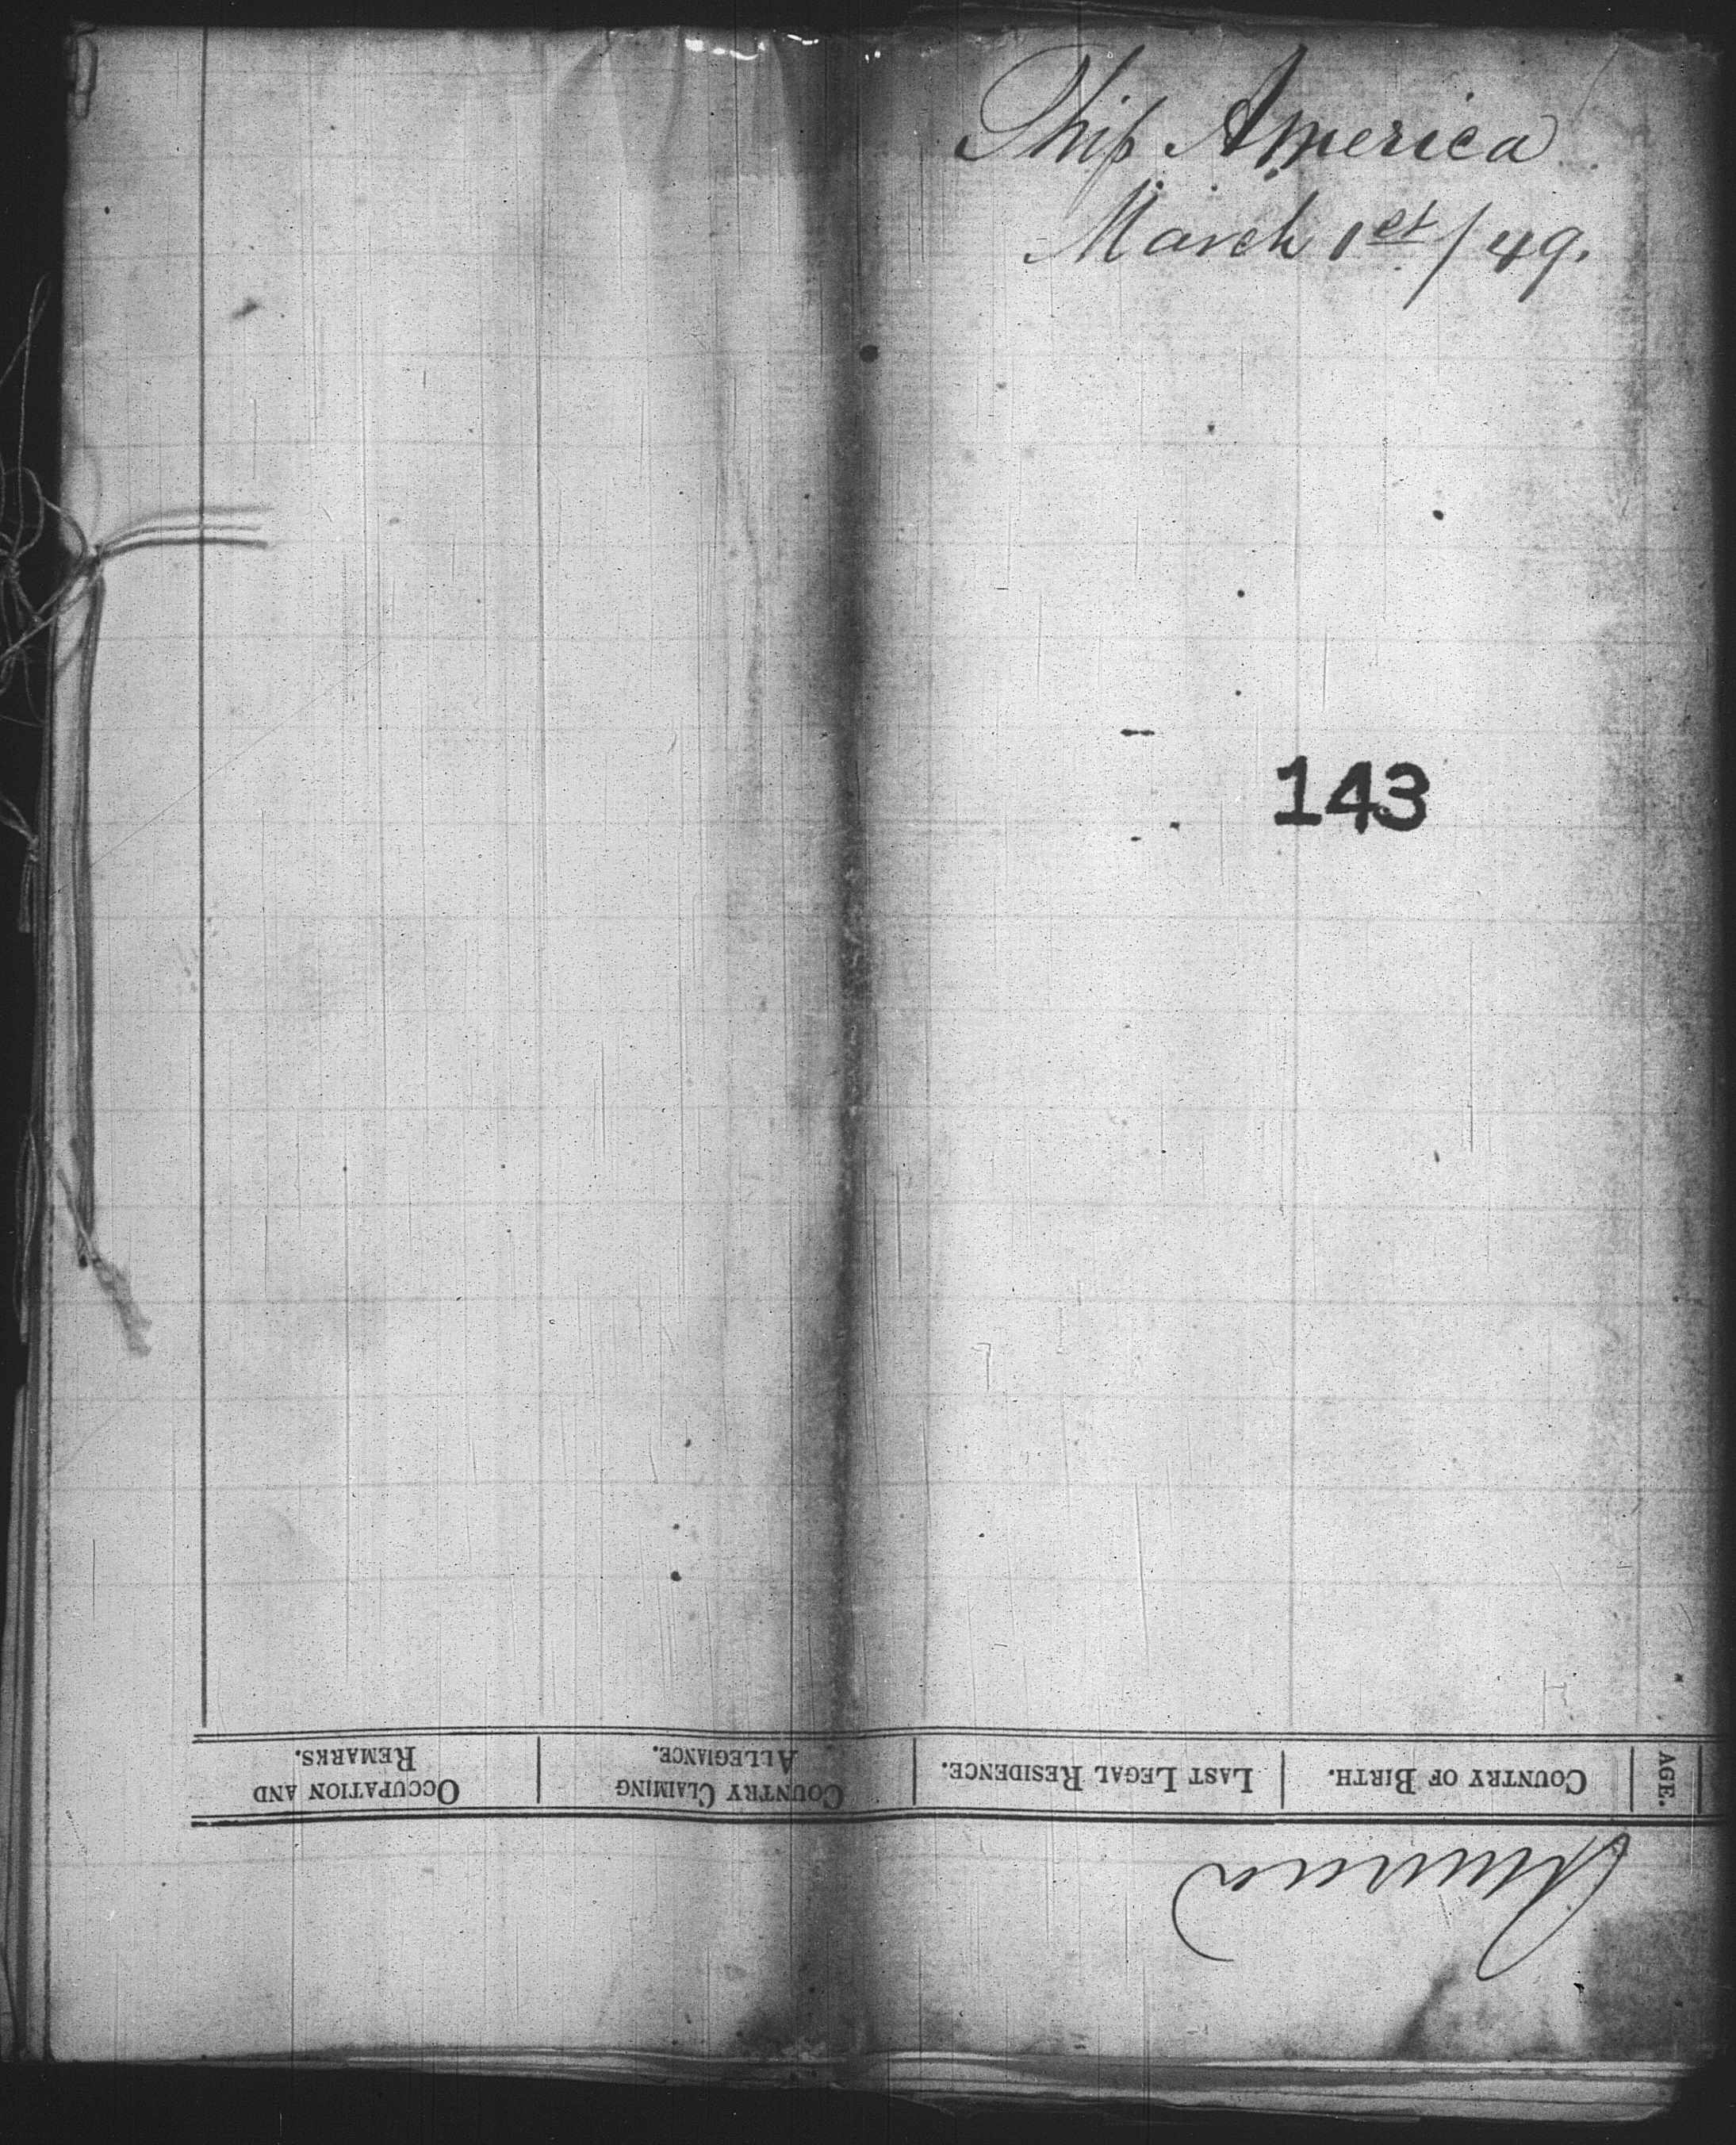 Ship America
March 1st/49.
143
AGE.
COUNTRY OF BIRTH.
LAST LEGAL RESIDENCE.
COUNTRY CLAIMING
ALLEGIANCE.
OCCUPATION AND
REMARKS.